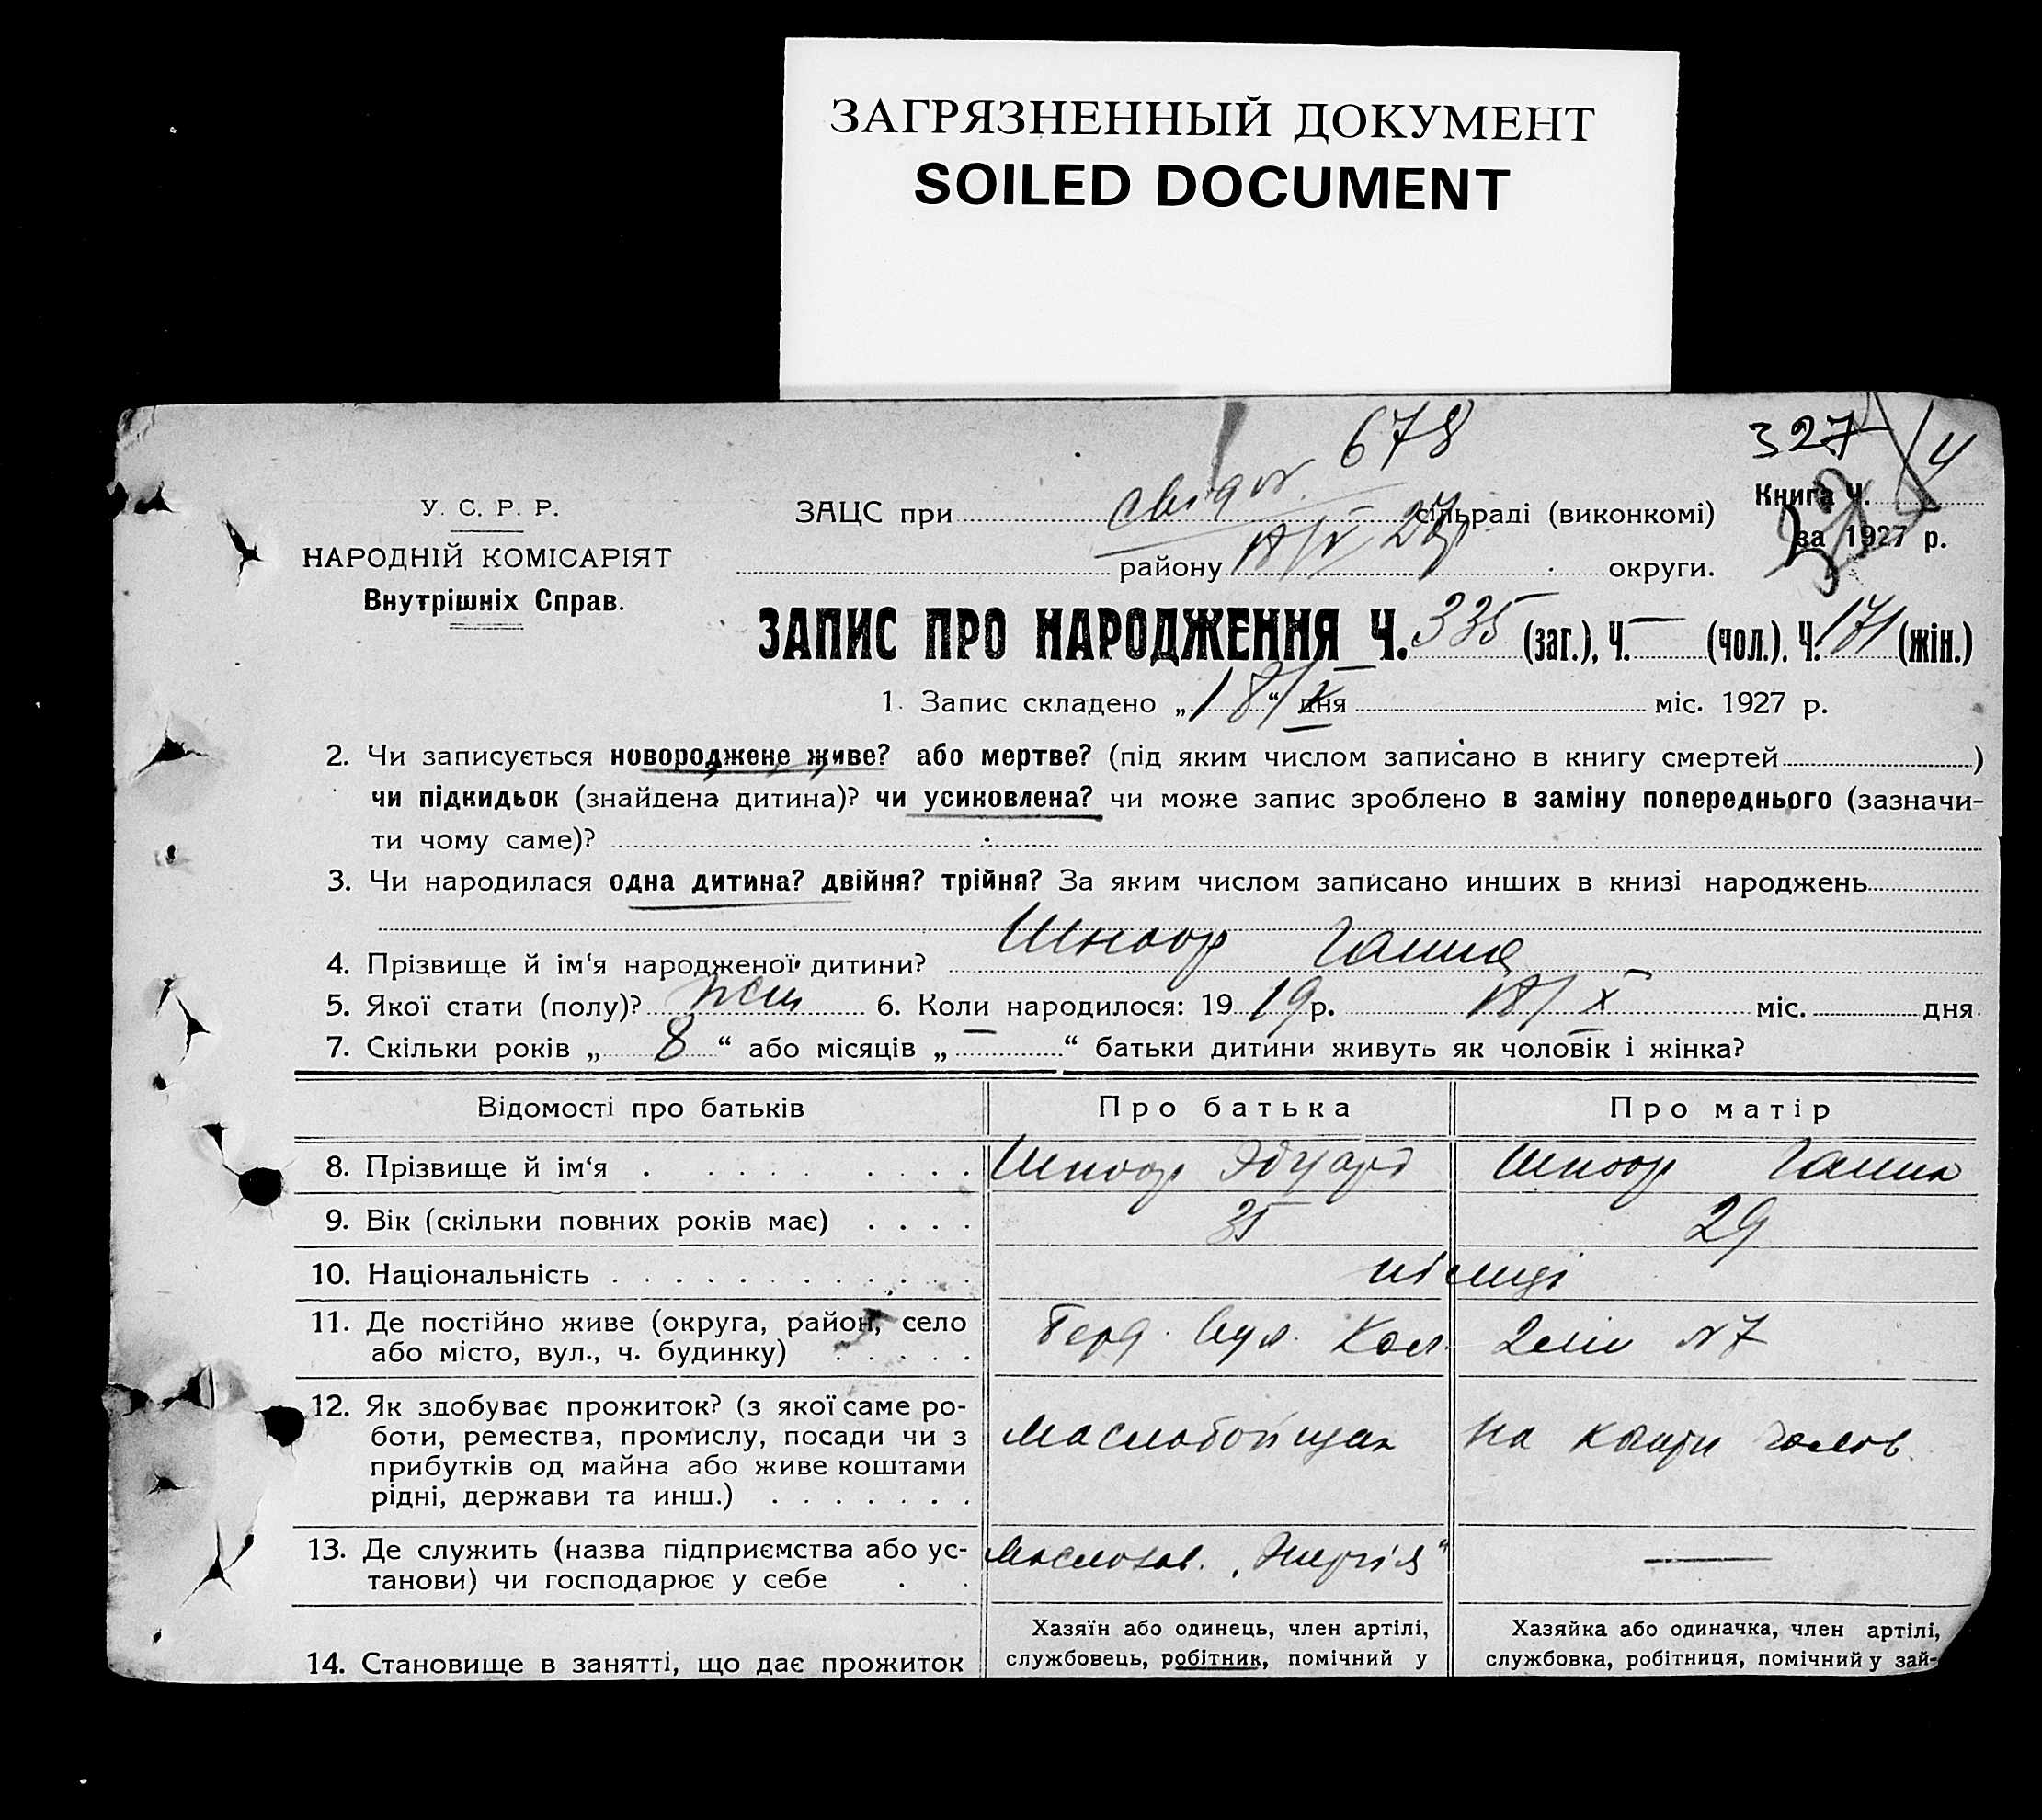 ЗАГРЯЗНЕННЫЙ ДОКУМЕНТ
SOILED DOCUMENT
678
327
4
У. С. Р. Р.
НАРОДНІЙ КОМІСАРІЯТ
Внутрішніх Справ.
ЗАЦС при сільраді (виконкомі)
району округи.
Книга Ч.
за 1927 р.
ЗАПИС ПРО НАРОДЖЕННЯ Ч. 335 (заг.), Ч. — (чол.). Ч. 171 (жін.)
1. Запис складено „18/X“ дня міс. 1927 р.
2. Чи записується новороджене живе? або мертве? (під яким числом записано в книгу смертей )
чи підкидьок (знайдена дитина)? чи усиковлена? чи може запис зроблено в заміну попереднього (зазначи-
ти чому саме)?
3. Чи народилася одна дитина? двійня? трійня? За яким числом записано инших в книзі народжень
4. Прізвище й ім‘я народженої дитини? Шноор Ганна
5. Якої стати (полу)? жін 6. Коли народилося: 19 19 р. 18/X міс. дня
7. Скільки років „ 8 “ або місяців „ — “ батьки дитини живуть як чоловік і жінка?
Відомості про батьків Про батька Про матір
8. Прізвище й ім‘я Шноор Эдуард Шноор Ганна
9. Вік (скільки повних років має) 35 29
10. Національність німці
11. Де постійно живе (округа, район, село
або місто, вул., ч. будинку)
№ 7
12. Як здобуває прожиток? (з якої саме ро-
боти, ремества, промислу, посади чи з
прибутків од майна або живе коштами
рідні, держави та инш.)
На кошти чолов.
13. Де служить (назва підприємства або ус-
танови) чи господарює у себе
Маслозав. „Энергія“ —
14. Становище в занятті, що дає прожиток
Хазяїн або одинець, член артілі,
службовець, робітник, помічний у
Хазяйка або одиначка, член артілі,
службовка, робітниця, помічний у зай-